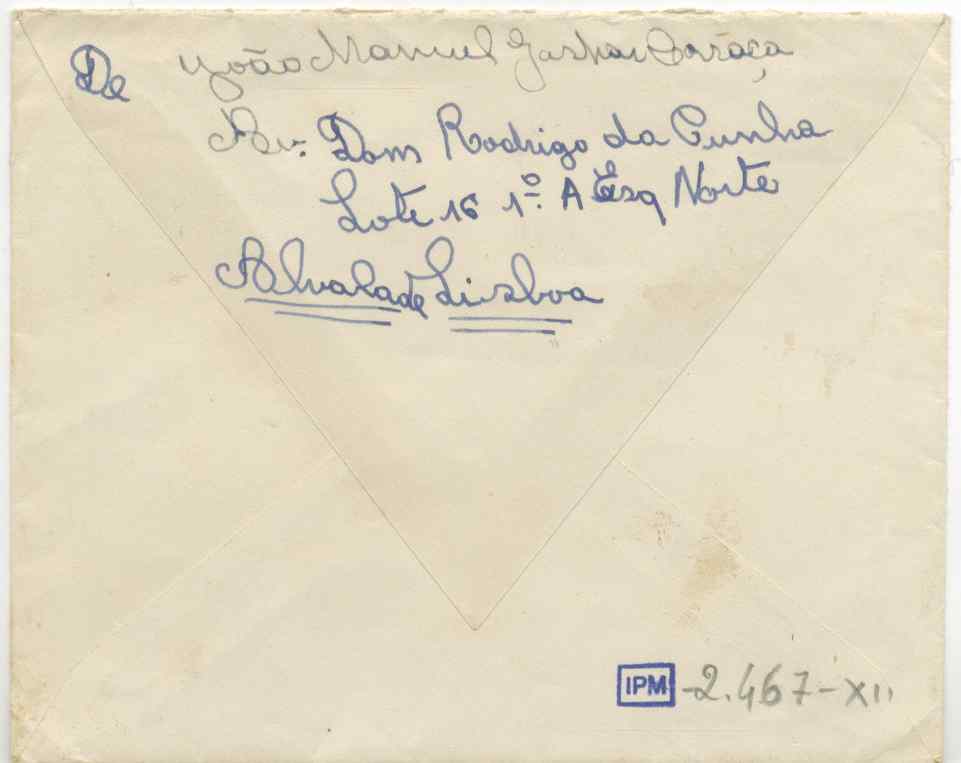 De João Manuel Gaspar Caraça
Av. Dom Rodrigo da Cunha
Lote 16 1º. A Esq Norte
Alvalade Lisboa
IPM -2.467-XII